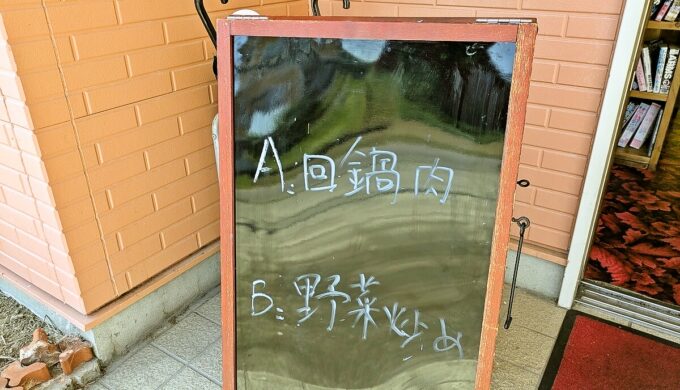 A:回鍋肉
B:野菜炒め